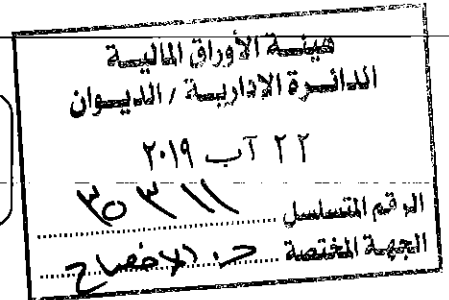 هيئة الأوراق المالية
الدائرة الإدارية / الديوان
٢٢ آب ٢٠١٩
الرقم المتسلسل ٣٥٣١١
الجهة المختصة الافصاح